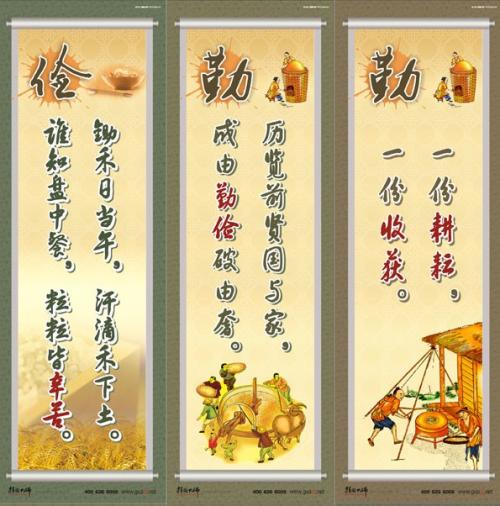 俭
锄禾日当午，汗滴禾下土。
谁知盘中餐，粒粒皆辛苦。
勤
历览前贤国与家，
成由勤俭破由奢。
勤
一份耕耘，
一份收获。